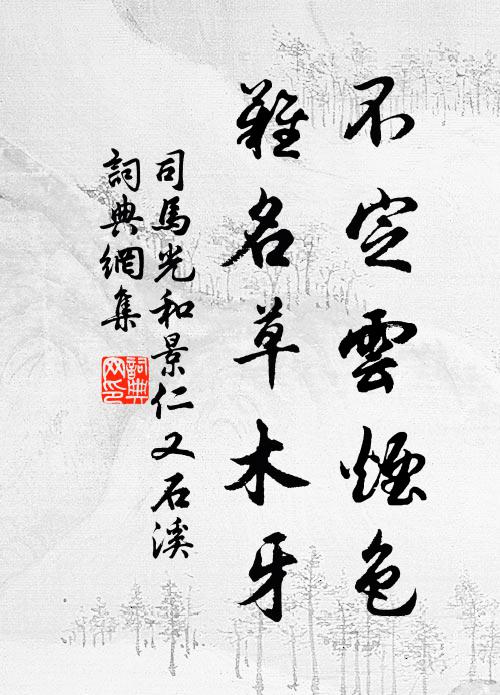 不定雲煙色
難名草木牙
司馬光和景仁又石溪
詞典網集
詞典
网印